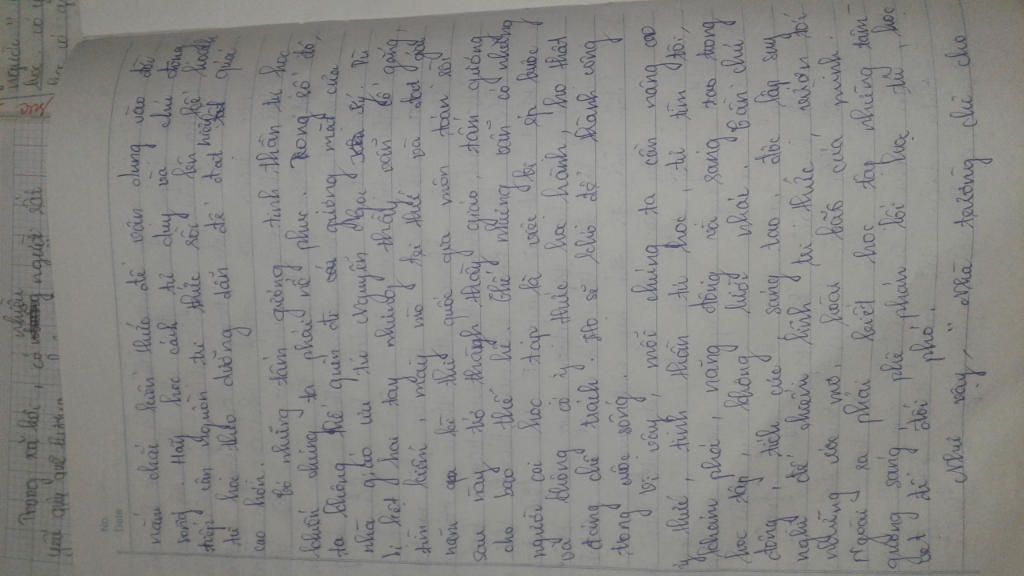 Trong xã hội, có nhiều người rất
No.
Date
nắm chắc kiến thức để vận dụng vào đời
sống. Hãy học cách tư duy và chủ động
tiếp cận nguồn tri thức rồi lên kế hoạch
tự học theo đường dẫn để đạt kết quả
cao hơn.
Có những tấm gương tinh thần tự học
khiến chúng ta phải nể phục. Trong số đó,
ta không thể quên đi gương mặt của
nhà giáo ưu tú Nguyễn Ngọc Kí. Dù
bị liệt hai tay nhưng thầy vẫn cố gắng,
tìm kiếm, mày mò lại thấy và đạt
năm kì thi quốc gia môn toán rồi
sau này trở thành thầy giáo, tấm gương
cho bao thế hệ. Thế nhưng vẫn có những
người coi học tập là việc bị ép buộc
và không có ý thức học hành, họ thật
đáng chê trách. Họ sẽ khó để thành công
trong cuộc sống.
Vì vậy, mỗi chúng ta cần nâng cao
ý thức, tinh thần tự học, tự tìm tòi,
khám phá, năng động và sáng tạo trong
học tập, không lười nhác. Bản chủ
động, tích cực sáng tạo, độc lập suy
nghĩ để chiếm lĩnh tri thức, vươn tới
những ước mơ, hoài bão của mình.
Ngoài ra phải biết học tập những tấm
gương sáng, phê phán lối học tủ, học
vẹt để đối phó.
Như vậy, "Nhà trường chỉ cho